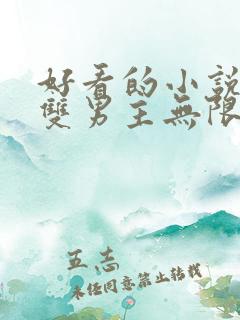 好看的小說
雙男主無限
五志
未經同意禁止轉載